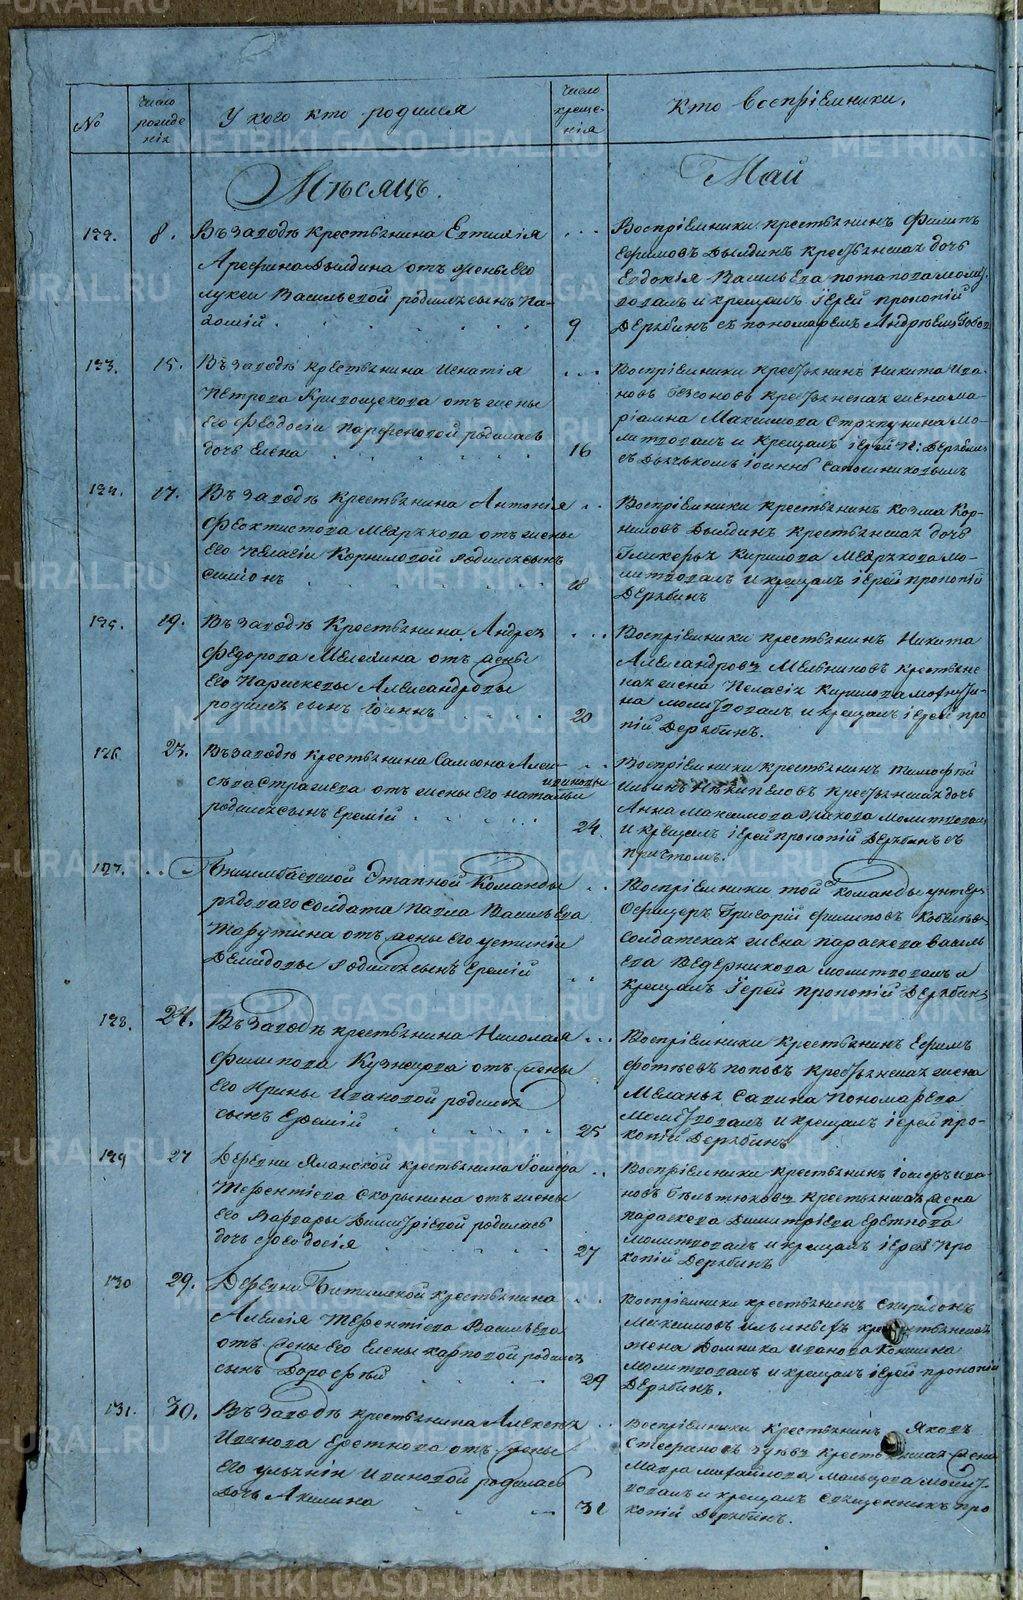 №
Число рожде нія
У кого кто родился
Число креще- нія
Кто воспріемники.
Мѣсяцъ.
Май
122. 8. Въ заводѣ крестьянина Евтихія
Арефина Дылдина отъ жены его
Лукеи Васильевой родился сынъ Па-
хомій
9
Воспріемники крестьянинъ Филиппъ
Ефимовъ Дылдинъ крестьянская дочь
Евдокія Васильева Потапова молит-
вовалъ и крещалъ іерей Прокопій
Дерябинъ съ пономаремъ Андреемъ
123. 15. Въ заводѣ крестьянина Игнатія
Петрова Кривощекова отъ жены
его Феодосіи Парфеновой родилась
дочь Елена
16
Воспріемники крестьянинъ Никита Ива-
новъ крестьянская жена Ма-
ріамна Максимова мо-
литвовалъ и крещалъ іерей П: Дерябинъ
съ дьячькомъ Іоанномъ Сапожниковымъ
124. 17. Въ заводѣ крестьянина Антонія
Феоктистова отъ жены
его Пелагіи Корниловой родился сынъ
Симіонъ
18
Воспріемники крестьянинъ Козма Кор-
ниловъ Дылдинъ крестьянская дочь
Гликерья Кирилова мо-
литвовалъ и крещалъ іерей Прокопій
Дерябинъ
125. 19. Въ заводѣ крестьянина Андрея
Федорова отъ жены
его Параскевы Александровы
родился сынъ Іоаннъ
20
Воспріемники крестьянинъ Никита
Александровъ Мельниковъ крестьянс-
кая жена Пелагія Кирилова
молитвовалъ и крещалъ іерей Про
копій Дерябинъ.
126 23. Въ заводѣ крестьянина Самсона Алек-
сѣева отъ жены его Натальи
Ивановы
родился сынъ Еремій
24
Воспріемники крестьянинъ Тимофей
крестьянская дочь
Анна Максимова молитвовалъ
и крещалъ іерей Прокопій Дерябинъ съ
причтомъ.
127. Этапной Команды
рядоваго солдата Павла Васильева
отъ жены его Устиніи
Демидовы родился сынъ Еремій
Воспріемники той команды унтеръ
Офицеръ Григорій Филиповъ
солдатская жена Параскева Василь
ева Ведерникова молитвовалъ и
крещалъ іерей Прокопій Дерябинъ
128. 24. Въ заводѣ крестьянина Николая
Филипова Кузнецова отъ жены
его Ирины Ивановой родился
сынъ
25
Воспріемники крестьянинъ Ефимъ
Фотѣевъ Поповъ крестьянская жена
Меланья Савина Пономарева
молитвовалъ и крещалъ іерей Про-
копій Дерябинъ
129 27 Деревни крестьянина Іосифа
Терентіева Скорынина отъ жены
его Варвары Димитріевой родилась
дочь Феодосія
27
Воспріемники крестьянинъ Іосифъ Ива-
новъ крестьянская жена
Параскева Димитріева
молитвовалъ и крещалъ іерей Про
копій Дерябинъ
130 29. Деревни Битимской крестьянина
Алексія Терентіева Васильева
отъ жены его Елены Карповой родился
сынъ Дорофей
29
Воспріемники крестьянинъ Спиридонъ
Максимовъ крестьянская
жена Домника Иванова Кокшина
молитвовалъ и крещалъ іерей Прокопій
Дерябинъ.
131. 30. Въ заводѣ крестьянина Алексѣя
Иванова отъ жены
его Ульяніи Ивановой родилась
дочь Акилина
31
Воспріемники крестьянинъ Яковъ
Стефановъ Зуевъ крестьянская жена
Мавра Михайлова Мальцова молит-
вовалъ и крещалъ священникъ Про
копій Дерябинъ.
METRIKI.GASO-URAL.RU